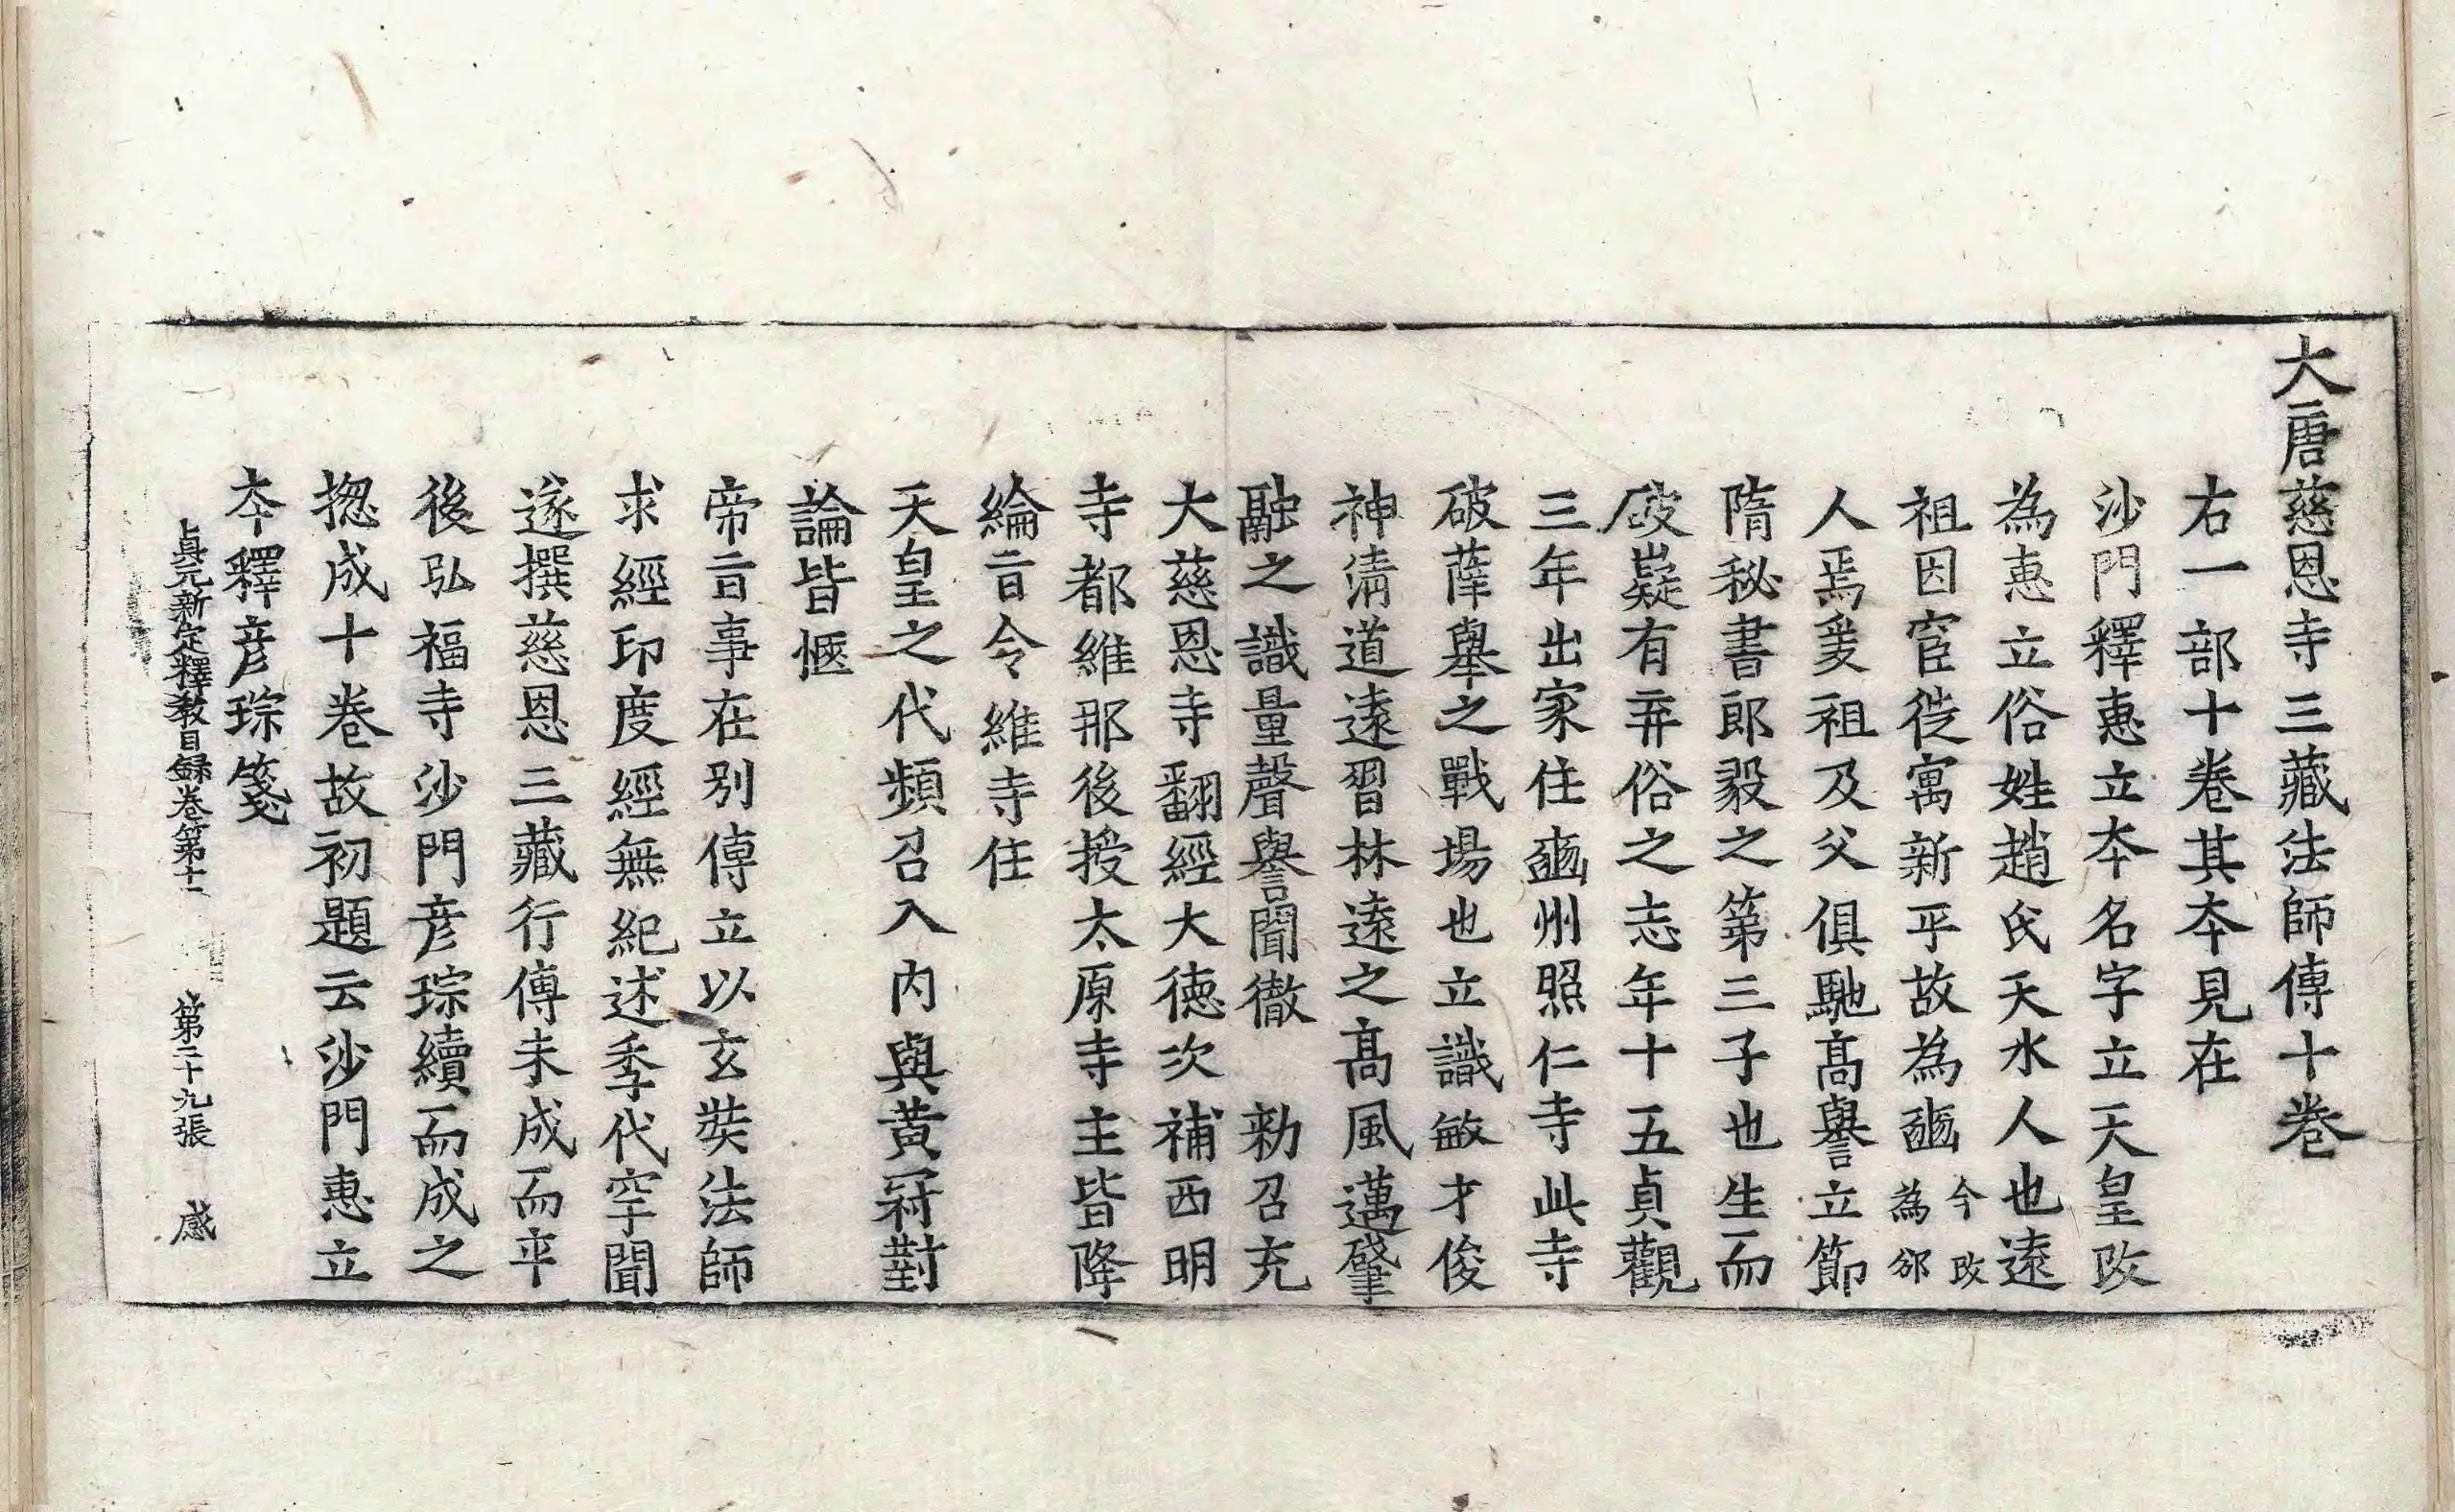 大唐慈恩寺三藏法師傳十卷
右一部十卷其夲見在
沙門釋惠立夲名字立天皇改
為惠立俗姓趙氏天水人也遠
祖因宦徙寓新平故為豳今改為邠
人焉爰祖及父俱馳髙譽立節
隋秘書郎毅之第三子也生而
岐嶷有弃俗之志年十五貞觀
三年出家住豳州照仁寺此寺
破薛舉之戰場也立識敏才俊
神清道遠習林遠之髙風邁肇
融之識量聲譽聞徹 勑召充
大慈恩寺翻經大德次補西明
寺都維那後授太原寺主皆降
綸旨令維寺任
天皇之代頻召入內與黃冠對
論皆愜
帝旨事在別傳立以玄奘法師
求經印度經無紀述季代罕聞
遂撰慈恩三藏行傳未成而卒
後弘福寺沙門彦琮續而成之
揔成十卷故初題云沙門惠立
夲釋彦琮箋
貞元新定釋教目録卷第十一 第二十九張 感